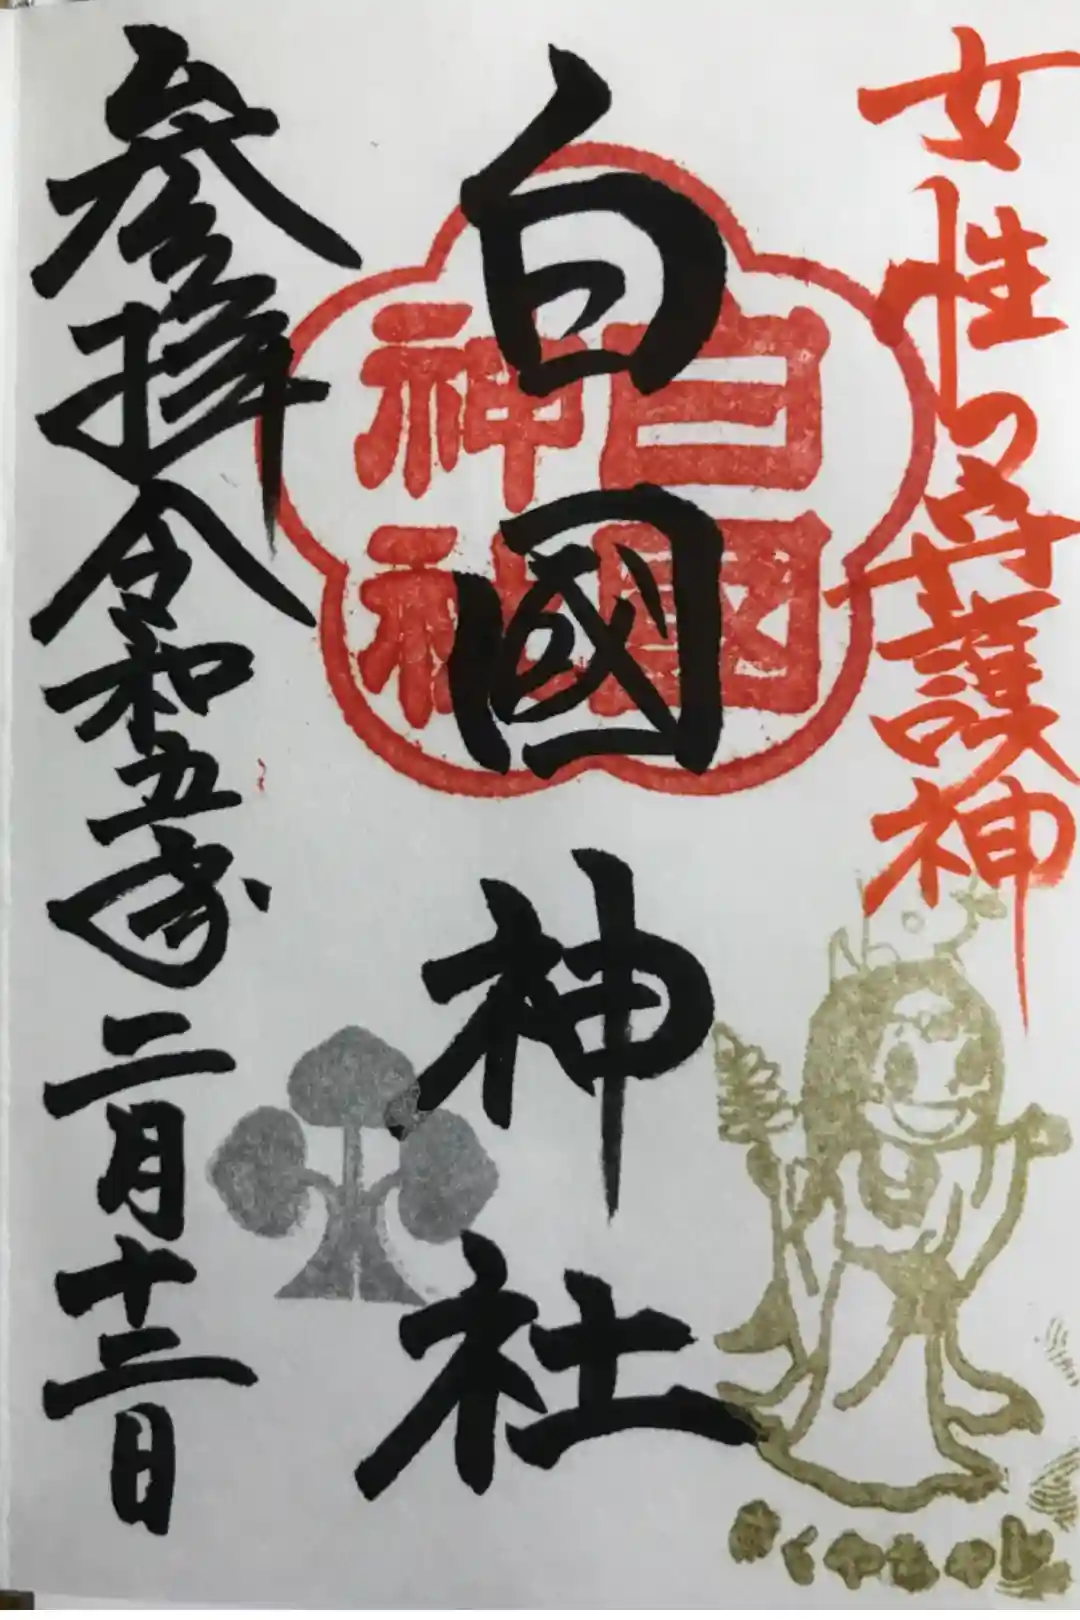 女性の守護神
白國神社
白國
神社
参拝令和五年二月十二日